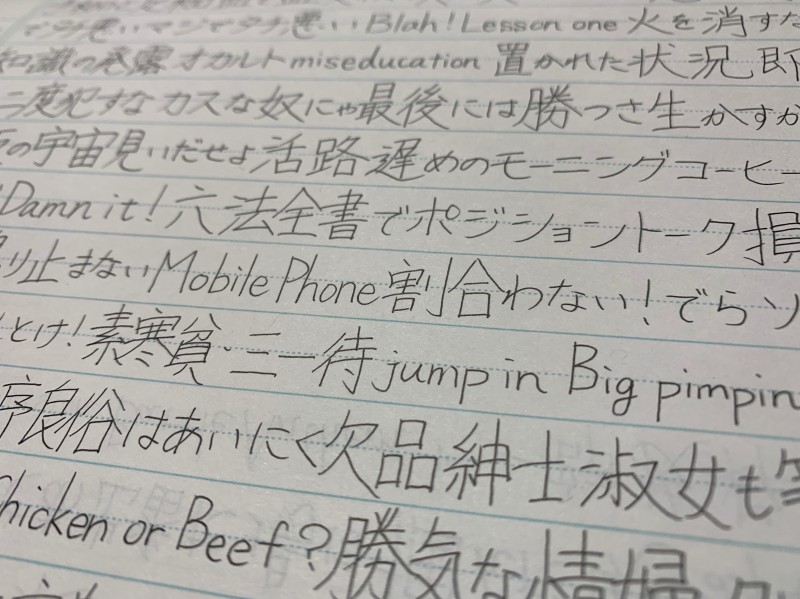 悪いマジでタチ悪いBlah! Lesson one 火を消すな
知識の発露オカルトmiseducation 置かれた状況即
二度犯すなカスな奴にゃ最後には勝つさ生かすか
の宇宙見いだせよ活路遅めのモーニングコーヒー
Damn it! 六法全書でポジショントーク損
り止まないMobile Phone割合わない!でらソ
とけ!素寒貧・二一待jump in Big pimpin
序良俗はあいにく欠品紳士淑女も等
Chicken or Beef?勝気な情婦